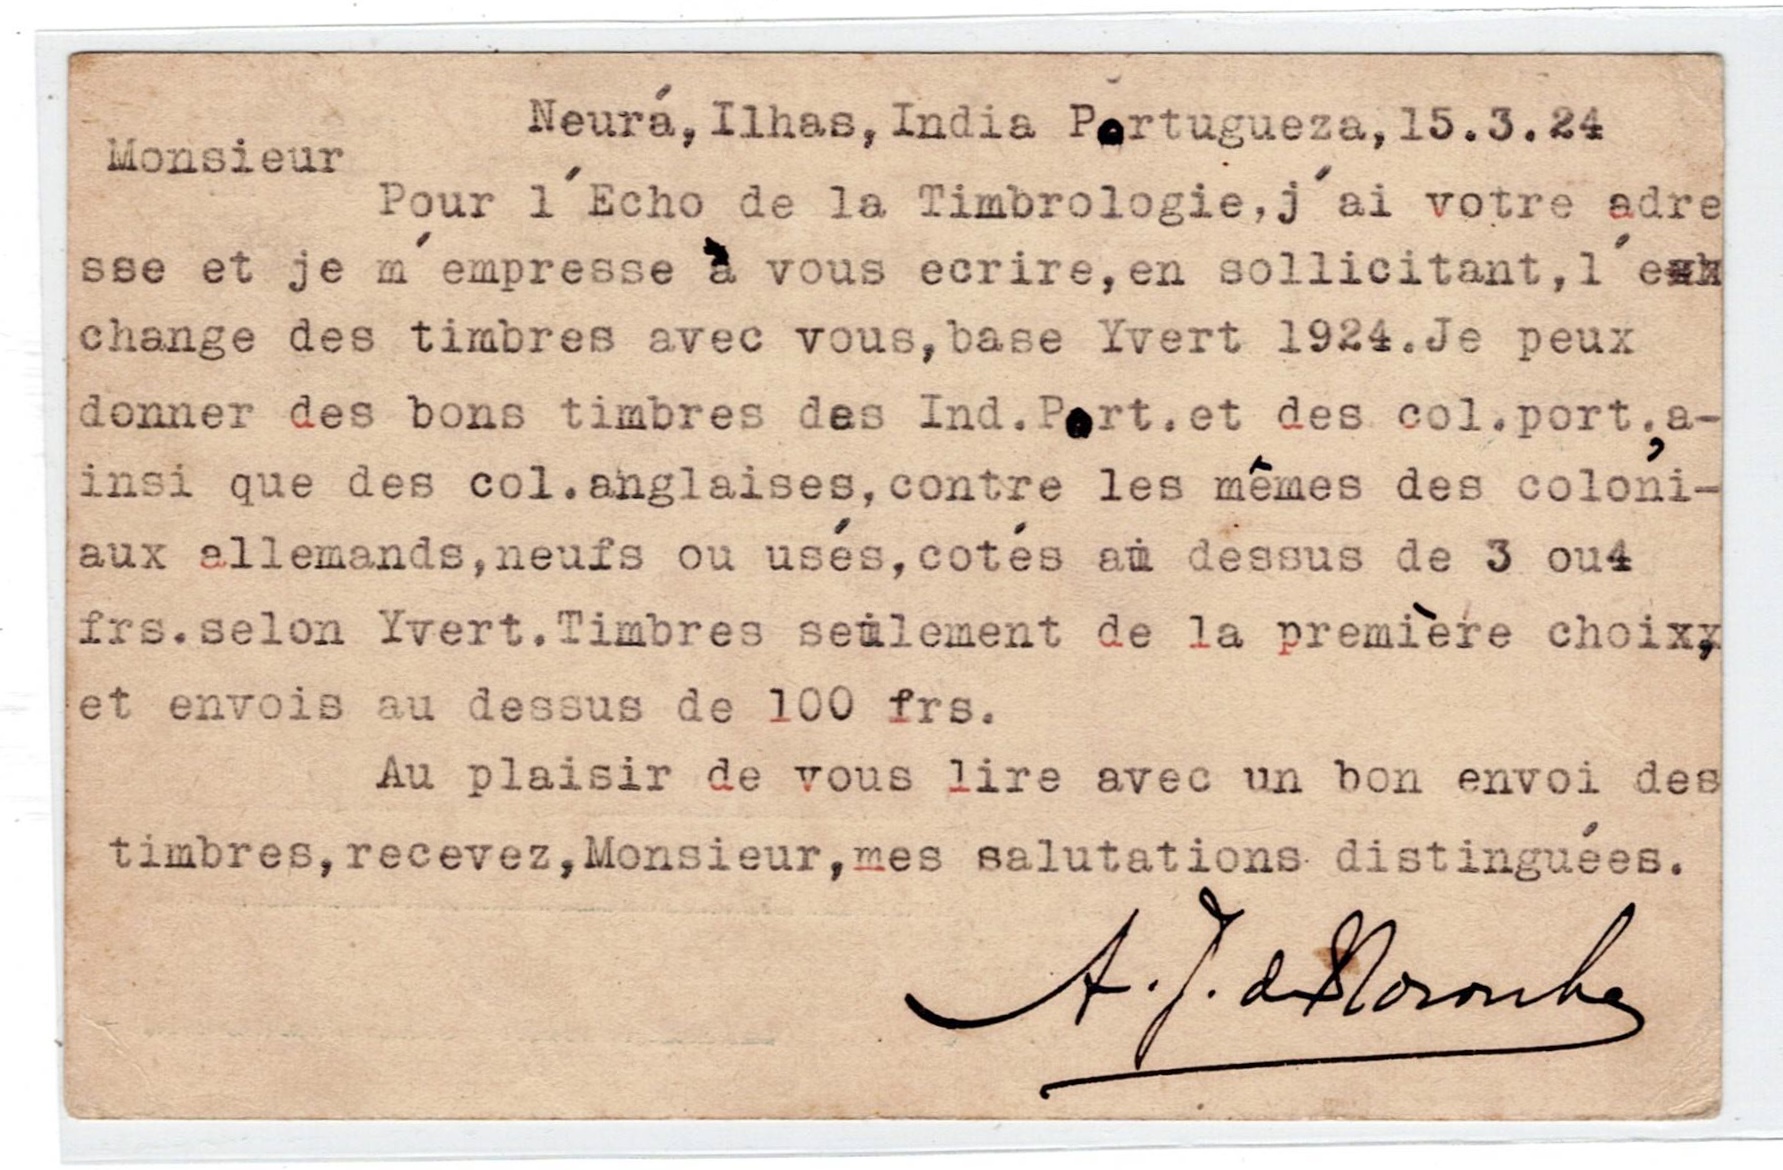 Neurá, Ilhas, India Portugueza, 15.3.24
Monsieur
Pour l´Echo de la Timbrologie, j´ai votre adre
sse et je m´empresse à vous ecrire, en sollicitant, l´e
change des timbres avec vous, base Yvert 1924. Je peux
donner des bons timbres des Ind. Port. et des col. port., a-
insi que des col. anglaises, contre les mêmes des coloni-
aux allemands, neufs ou usés, cotés au dessus de 3 ou4
frs. selon Yvert. Timbres seulement de la première choix,
et envois au dessus de 100 frs.
Au plaisir de vous lire avec un bon envoi des
timbres, recevez, Monsieur, mes salutations distinguées.
A. J. de Noronha